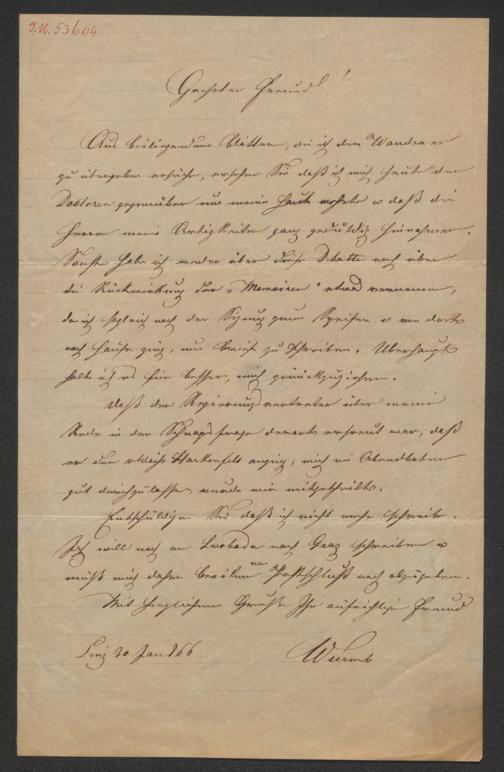 J.N. 53604
Geehrter Freund!
Aus beiliegendem Blatte, die ich dem Wanderer
zu übergeben ersuche, ersehen Sie daß ich mich heute den
Doctoren gegenüber um meine Haut wehrte u daß die
Herren meine Artigkeiten ganz geduldig hinnahmen.
Sonst habe ich weder über diese Debatte noch über
die Rückwirkung der „Memoiren“ etwas vernommen,
da ich sogleich nach der Sitzung zum Speisen u von dort
nach Hause ging, um Briefe zu schreiben. Überhaupt
halte ich es für besser, mich zurückzuziehen.
Daß der Regierungsvertreter über meine
Rede in der Schnapsfrage derart erfreut war, daß
er den anging, mich im Abendboten
gut durchzulassen, wurde mir mitgetheilt.
Entschuldigen Sie daß ich nicht mehr schreibe.
Ich will noch an nach Graz schreiben u
muß mich daher beeilen vor Postschluß noch abzugeben.
Mit herzlichem Gruße Ihr aufrichtiger Freund
Linz 20 Jan 866.
Wurmb